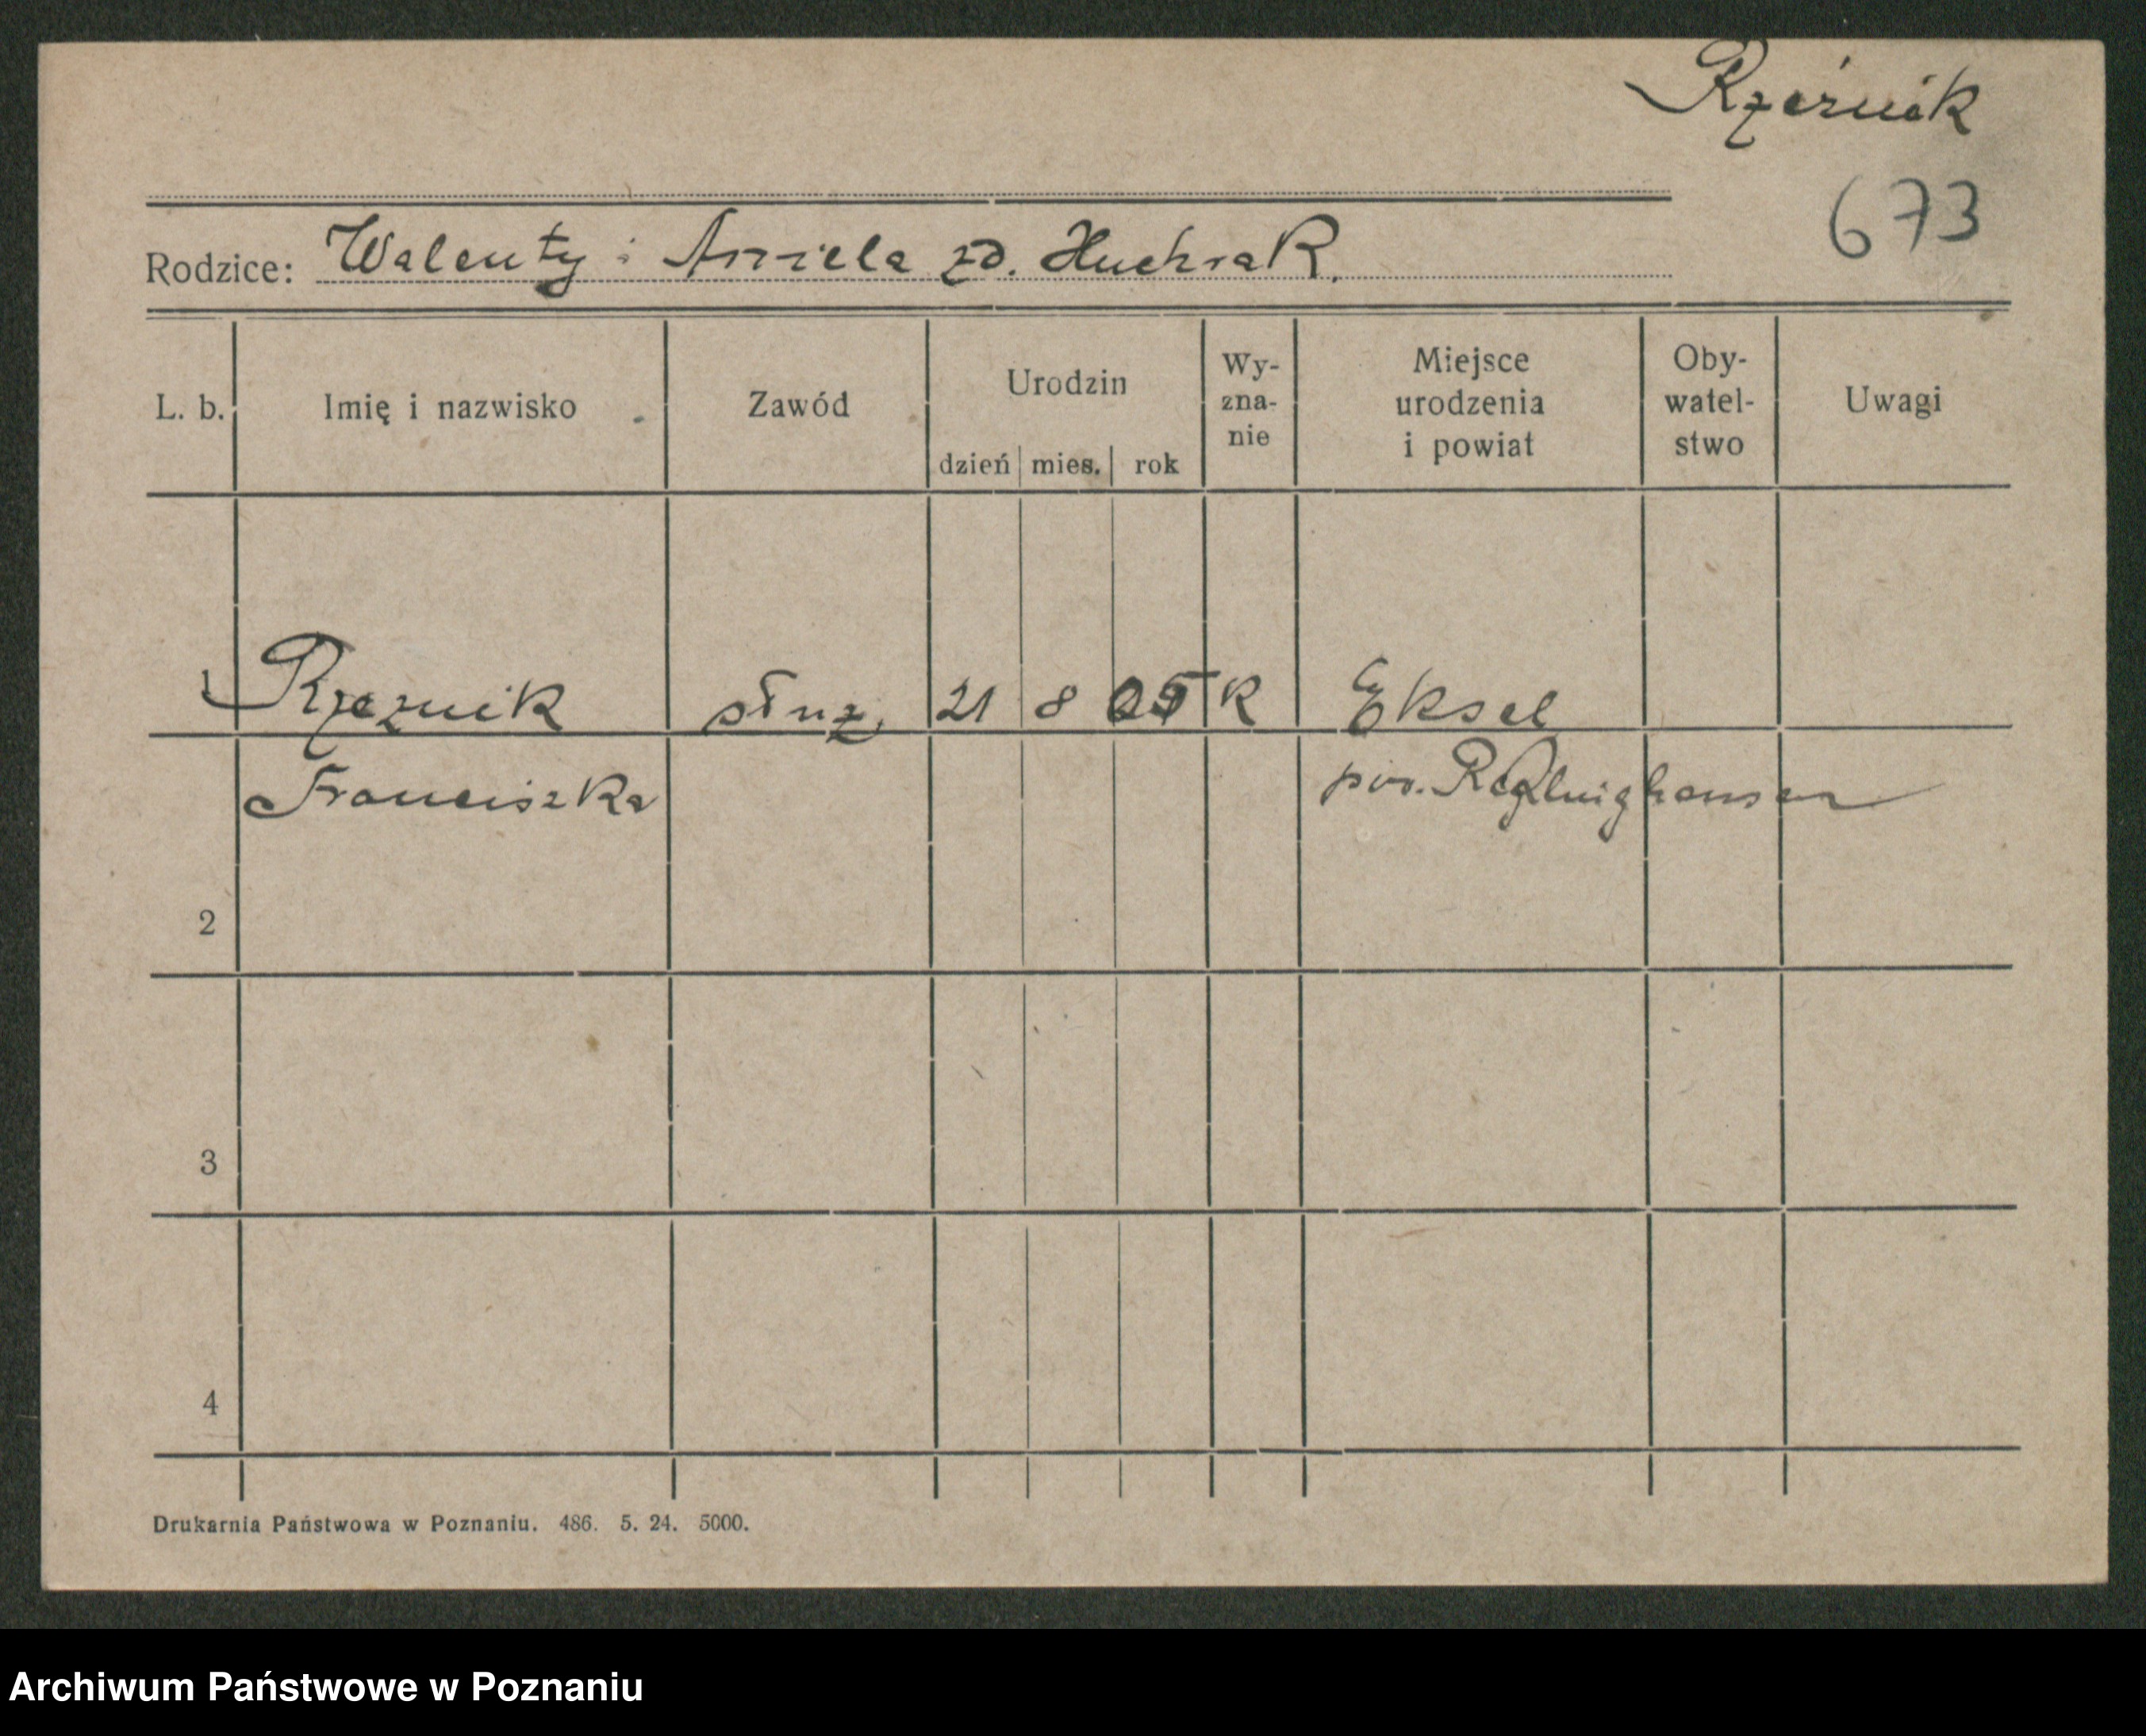 Rzeźnik
673
Rodzice: Walenty i Aniela zd. Huchrak.
L. b. Imię i nazwisko Zawód Urodzin dzień mies. rok Wy-zna-nie Miejsce urodzenia i powiat Oby-watel-stwo Uwagi
1 Rzeznik służ. 21 8 05 K Eksel
Franciszka pow.
2
3
4
Drukarnia Państwowa w Poznaniu. 486. 5. 24. 5000.
Archiwum Państwowe w Poznaniu